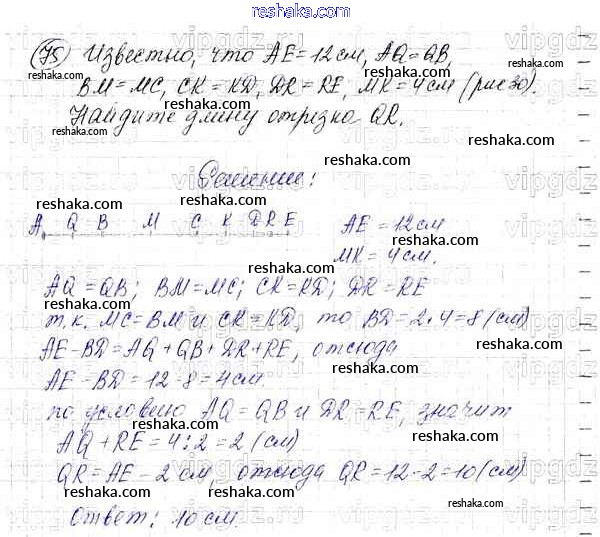 reshaka.com
75 Известно, что AE = 12 см, AQ = QB,
BM = MC, CK = KD, DR = RE, MK = 4 см (рис 30).
Найдите длину отрезка QR.
Решение:
A Q B M C K D R E AE = 12 см
MK = 4 см.
AQ = QB; BM = MC; CK = KD; DR = RE
т.к. MC = BM и CK = KD, то BD = 2·4 = 8 (см)
AE - BD = AQ + QB + DR + RE, отсюда
AE - BD = 12 - 8 = 4 см.
по условию AQ = QB и DR = RE, значит
AQ + RE = 4 : 2 = 2 (см)
QR = AE - 2 см, отсюда QR = 12 - 2 = 10 (см)
Ответ: 10 см.
reshaka.com